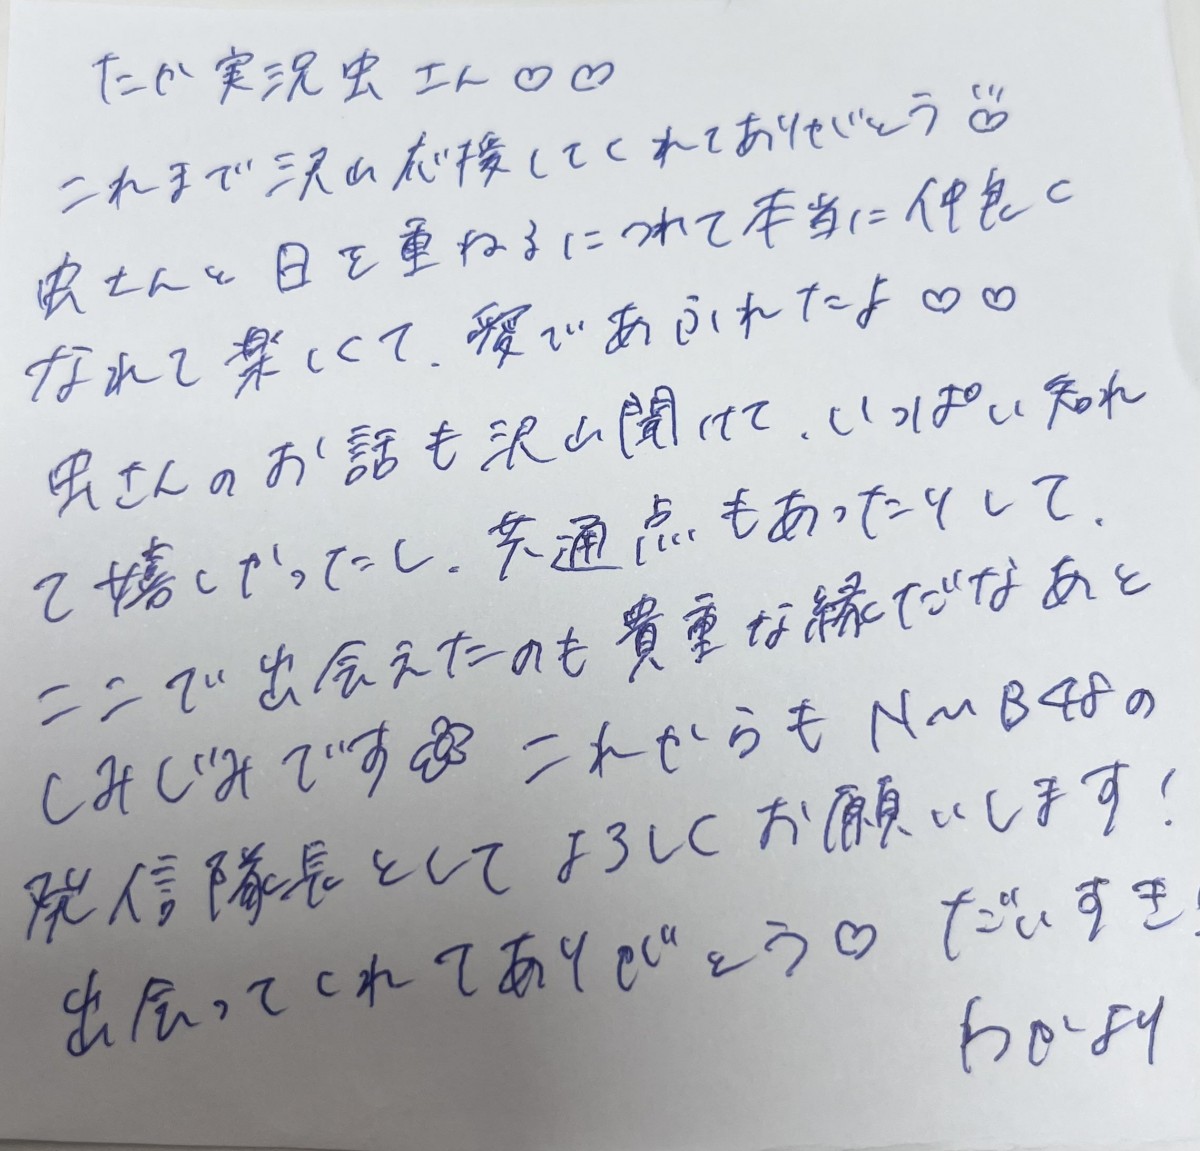 たか実況虫さん♡♡
これまで沢山応援してくれてありがとう
虫さんと日を重ねるにつれて本当に仲良く
なれて楽しくて、愛であふれたよ♡♡
虫さんのお話も沢山聞けて、いっぱい知れ
て嬉しかったし、共通点もあったりして、
ここで出会えたのも貴重な縁だなあと
しみじみです これからもNMB48の
発信隊長としてよろしくお願いします!
出会ってくれてありがとう♡ だいすき!
わかより